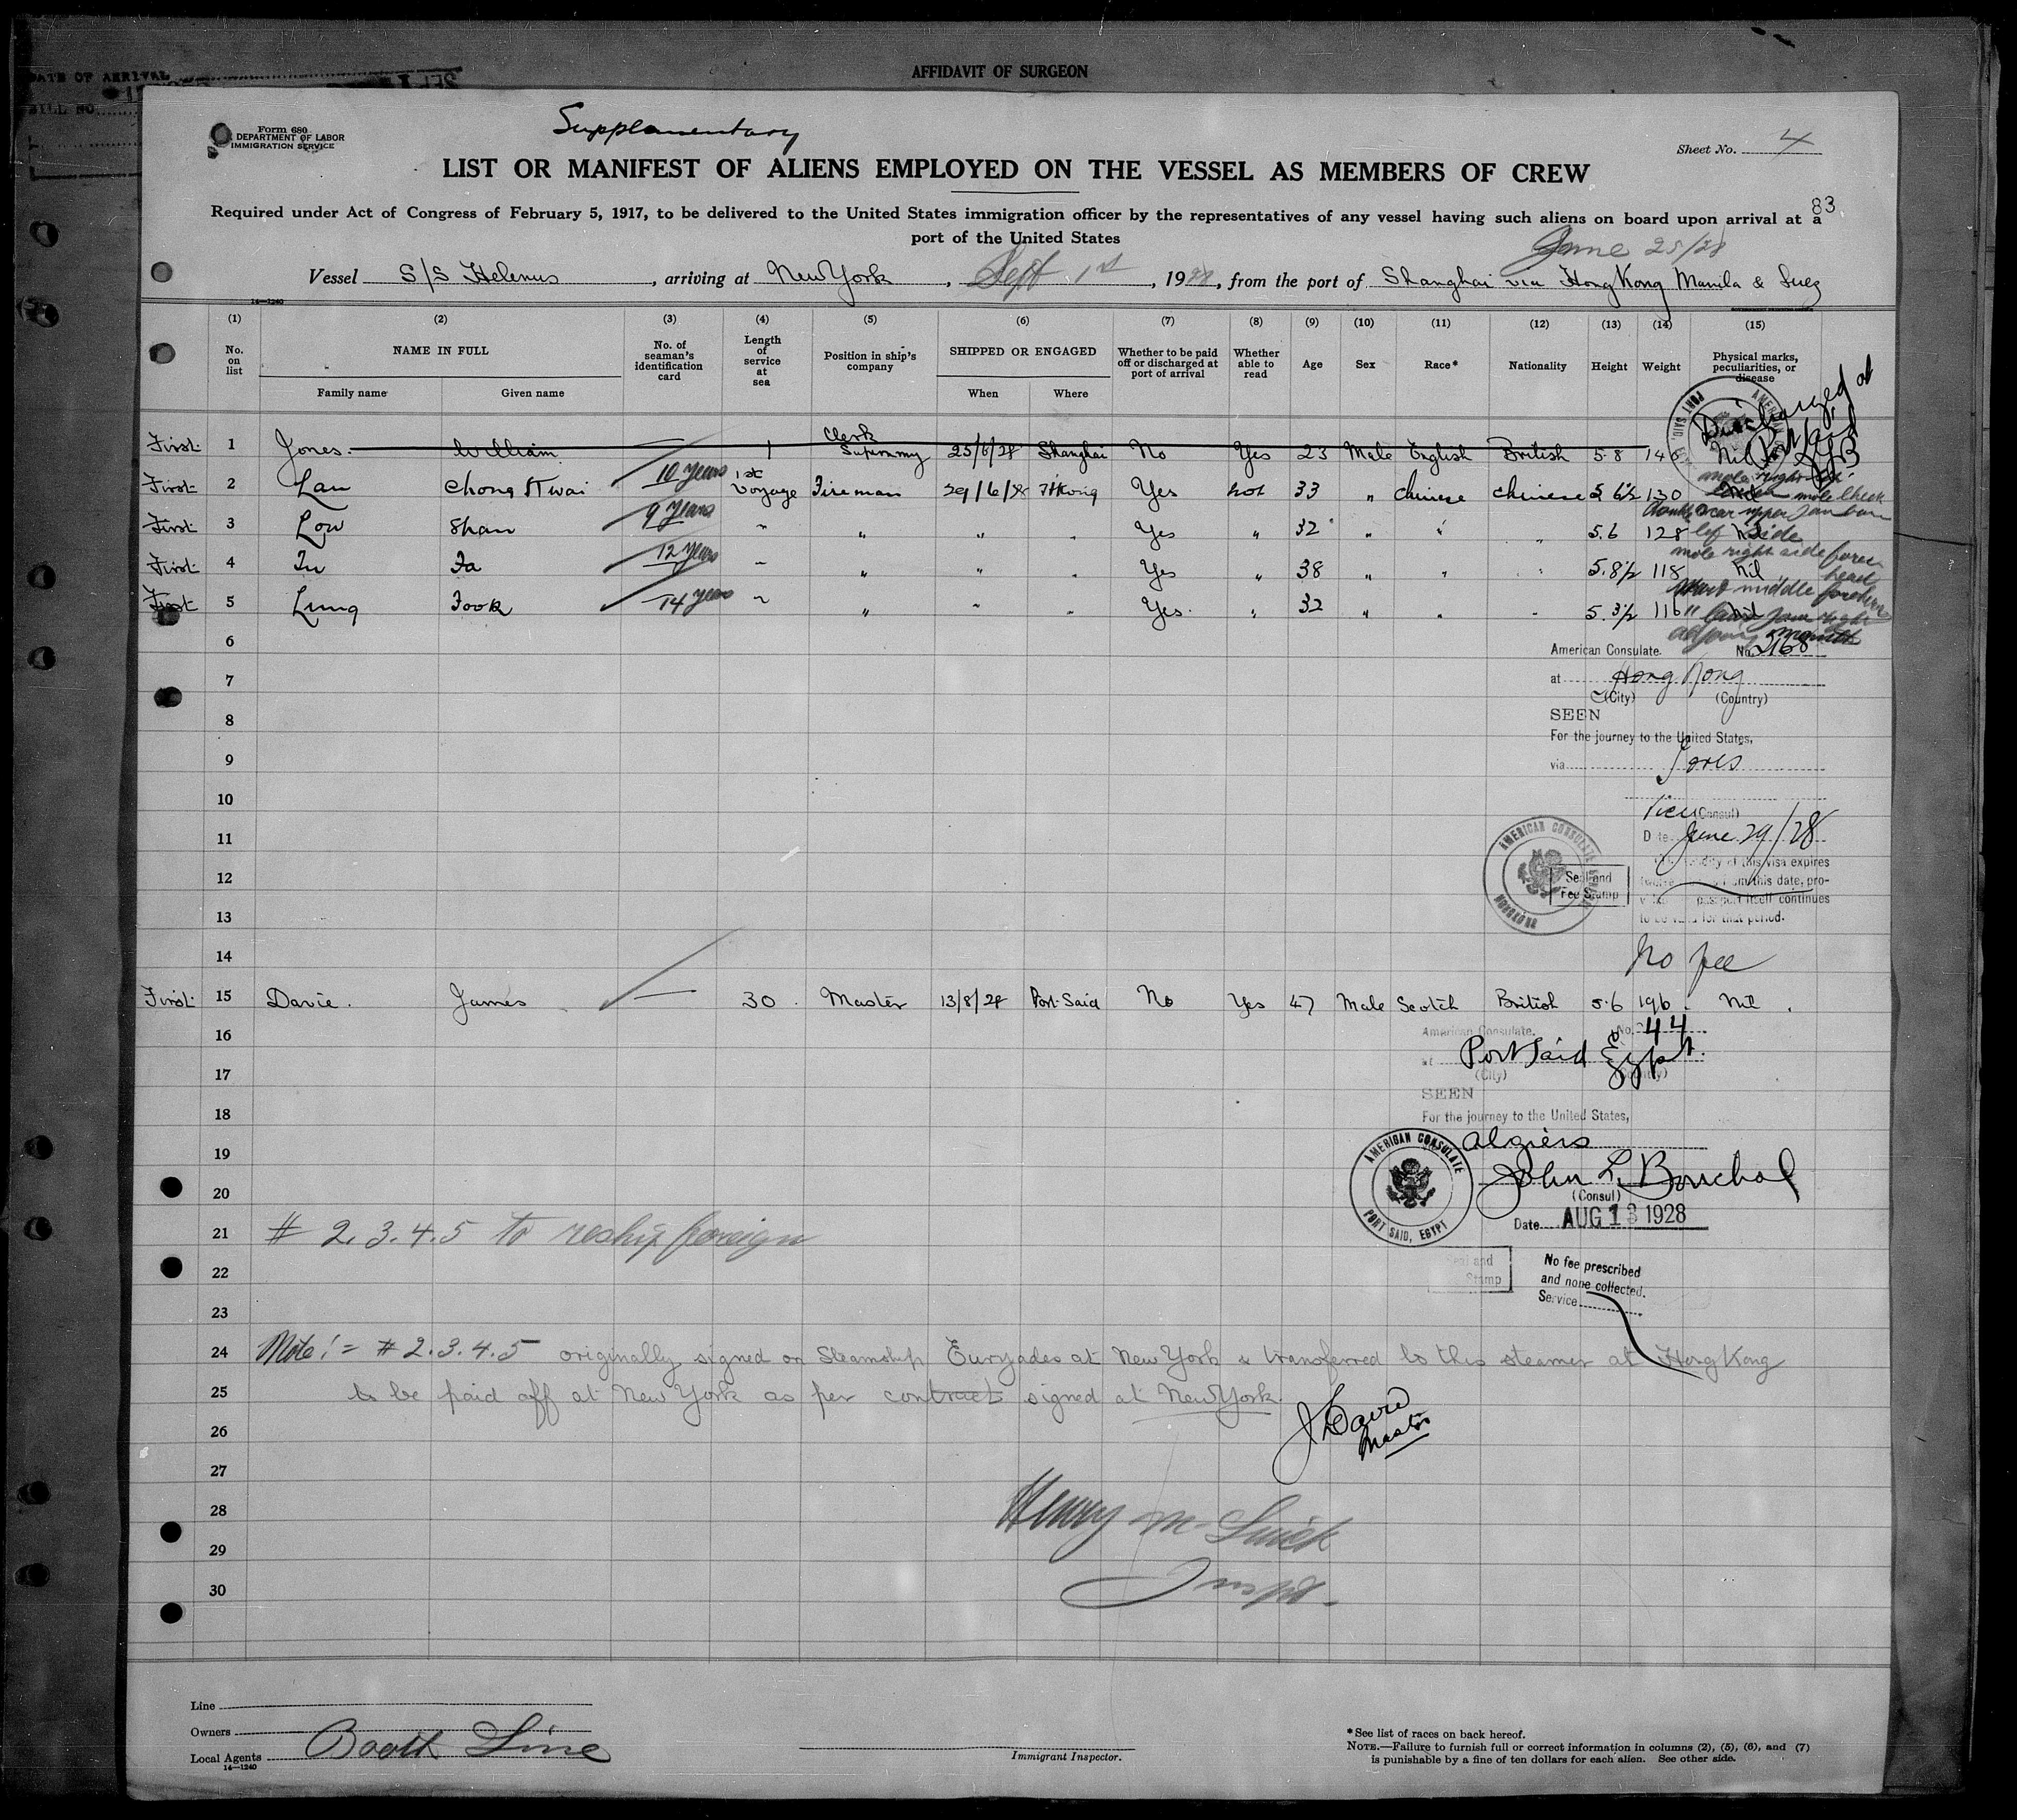 DATE OF ARRIVAL
BILL NO.
AFFIDAVIT OF SURGEON
Form 680
DEPARTMENT OF LABOR
IMMIGRATION SERVICE
Supplementary
Sheet No. 4
LIST OR MANIFEST OF ALIENS EMPLOYED ON THE VESSEL AS MEMBERS OF CREW
83
Required under Act of Congress of February 5, 1917, to be delivered to the United States immigration officer by the representatives of any vessel having such aliens on board upon arrival at a
port of the United States
June 25/28
Vessel S/S Helenus, arriving at New York, Sept 1st, 1928, from the port of Shanghai via Hong Kong Manila & Suez
14—1240
(1) (2) (3) (4) (5) (6) (7) (8) (9) (10) (11) (12) (13) (14) (15)
No. on list NAME IN FULL Family name Given name No. of seaman's identification card Length of service at sea Position in ship's company SHIPPED OR ENGAGED When Where Whether to be paid off or discharged at port of arrival Whether able to read Age Sex Race* Nationality Height Weight Physical marks, peculiarities, or disease
Discharged at Pt Said
First 1 Jones William — 1 Clerk Supernmy 25/6/28 Shanghai No Yes 23 Male English British 5.8 140 Nil
First 2 Lau Chong Kwai 10 years 1st Voyage Fireman 29/6/28 HKong Yes not 33 " Chinese Chinese 5 6½ 130 mole cheek
First 3 Low Shan 9 years " " " " Yes " 32 " " " 5.6 128 scar upper left side
First 4 Tu Fa 12 years " " " " Yes " 38 " " " 5.8½ 118 Nil mole right side forehead
First 5 Lung Fook 14 years " " " " Yes. " 32 " " " 5.3½ 116 middle forehead
6
7
8
9
10
11
12
13
14
American Consulate. No. 2168
at Hong Kong
(City) (Country)
SEEN
For the journey to the United States,
via
Vice (Consul)
Date June 29/28
validity of this visa expires
twelve months from this date, pro-
vided passport itself continues
to be valid for that period.
AMERICAN CONSULATE GENERAL HONGKONG
Seal and
Fee Stamp
No fee
First 15 Davie. James — 30 Master 13/8/28 Port-Said No Yes 47 Male Scotch British 5.6 196 Nil
16
17
18
19
20
American Consulate. No. 44
at Port Said Egypt.
(City) (Country)
SEEN
For the journey to the United States,
Algiers
AMERICAN CONSULATE PORT SAID, EGYPT
(Consul)
Date AUG 13 1928
21 # 2.3.4.5 to reship foreign
22
23
Seal and
Stamp
No fee prescribed
and none collected.
Service
24 Note:= # 2.3.4.5 originally signed on Steamship Euryades at New York & transferred to this steamer at Hong Kong
25 to be paid off at New York as per contract signed at New York.
J Davie
Master
26
27
28 Henry M
29
30 Inspt.
Line
Owners
Local Agents Booth Line
14—1240
Immigrant Inspector.
*See list of races on back hereof.
NOTE.—Failure to furnish full or correct information in columns (2), (5), (6), and (7)
is punishable by a fine of ten dollars for each alien. See other side.